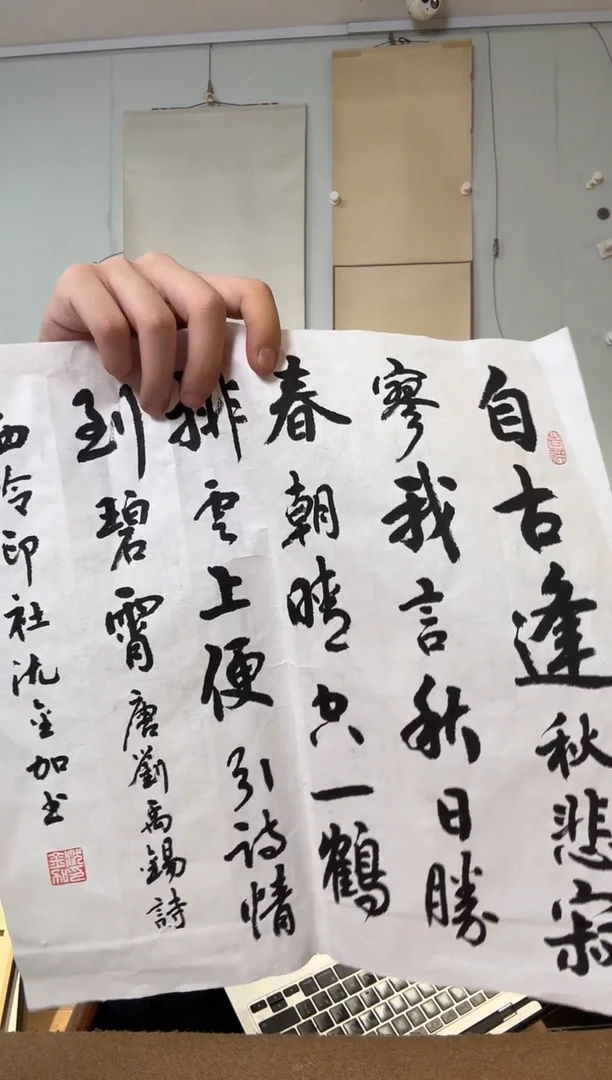 自古逢秋悲寂
寥我言秋日勝
春朝晴空一鶴
排雲上便引詩情
到碧霄唐劉禹錫詩
西泠印社沈金加书